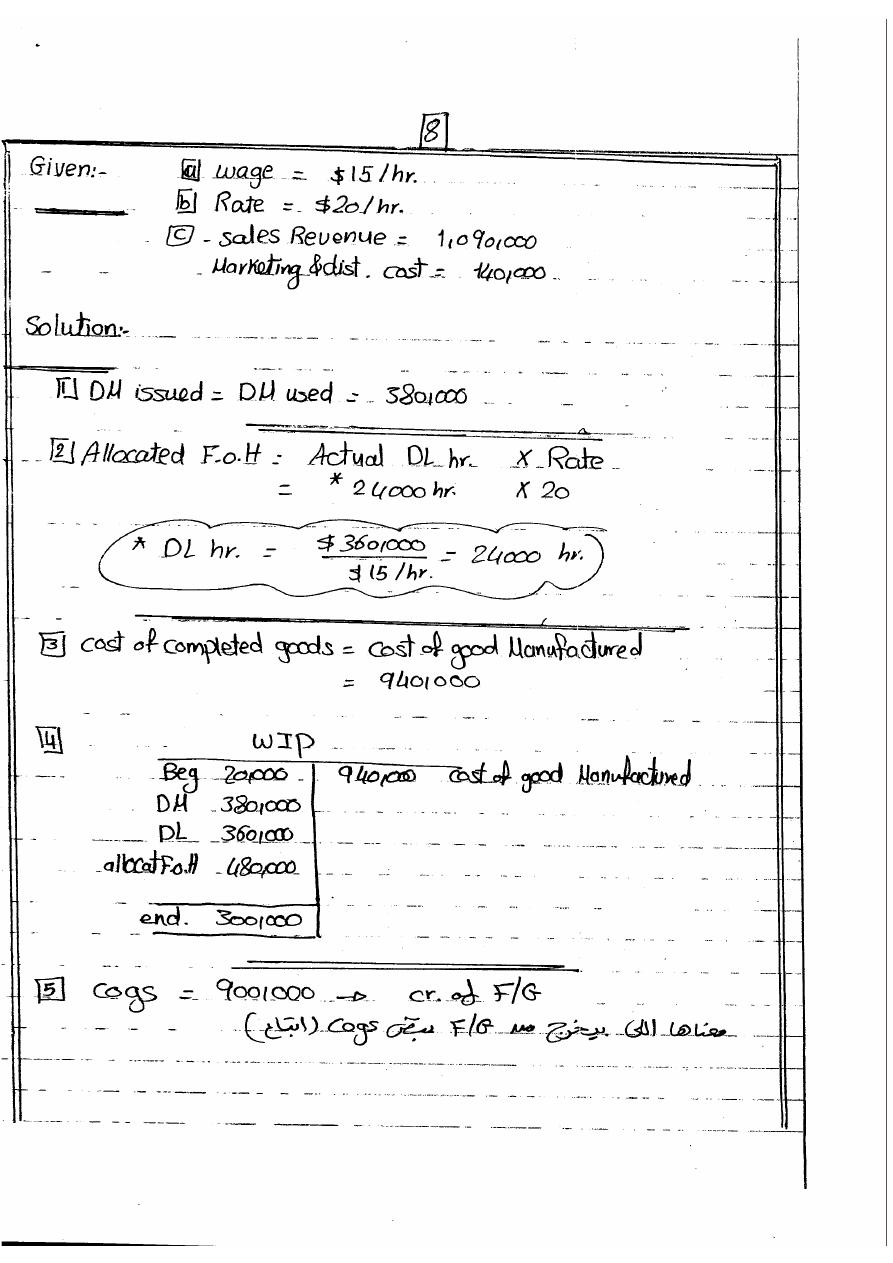 8
Given:- a wage = $15/hr.
b Rate = $20/hr.
c - sales Revenue = 1,090,000
Marketing & dist. cost = 140,000
Solution:-
1 DM issued = DM used = 380,000
2 Allocated F.o.H = Actual DL hr. X Rate
= * 24000 hr. X 20
* DL hr. = $360,000 / $15/hr. = 24000 hr.
3 cost of completed goods = cost of good Manufactured
= 940,000
4 WIP
Beg 20,000 940,000 cost of good Manufactured
DM 380,000
DL 360,000
allocat F.o.H 480,000
end. 300,000
5 cogs = 900,000 → cr. of F/G
معناها اللى بيخرج من F/G يبقى Cogs (اتباع)